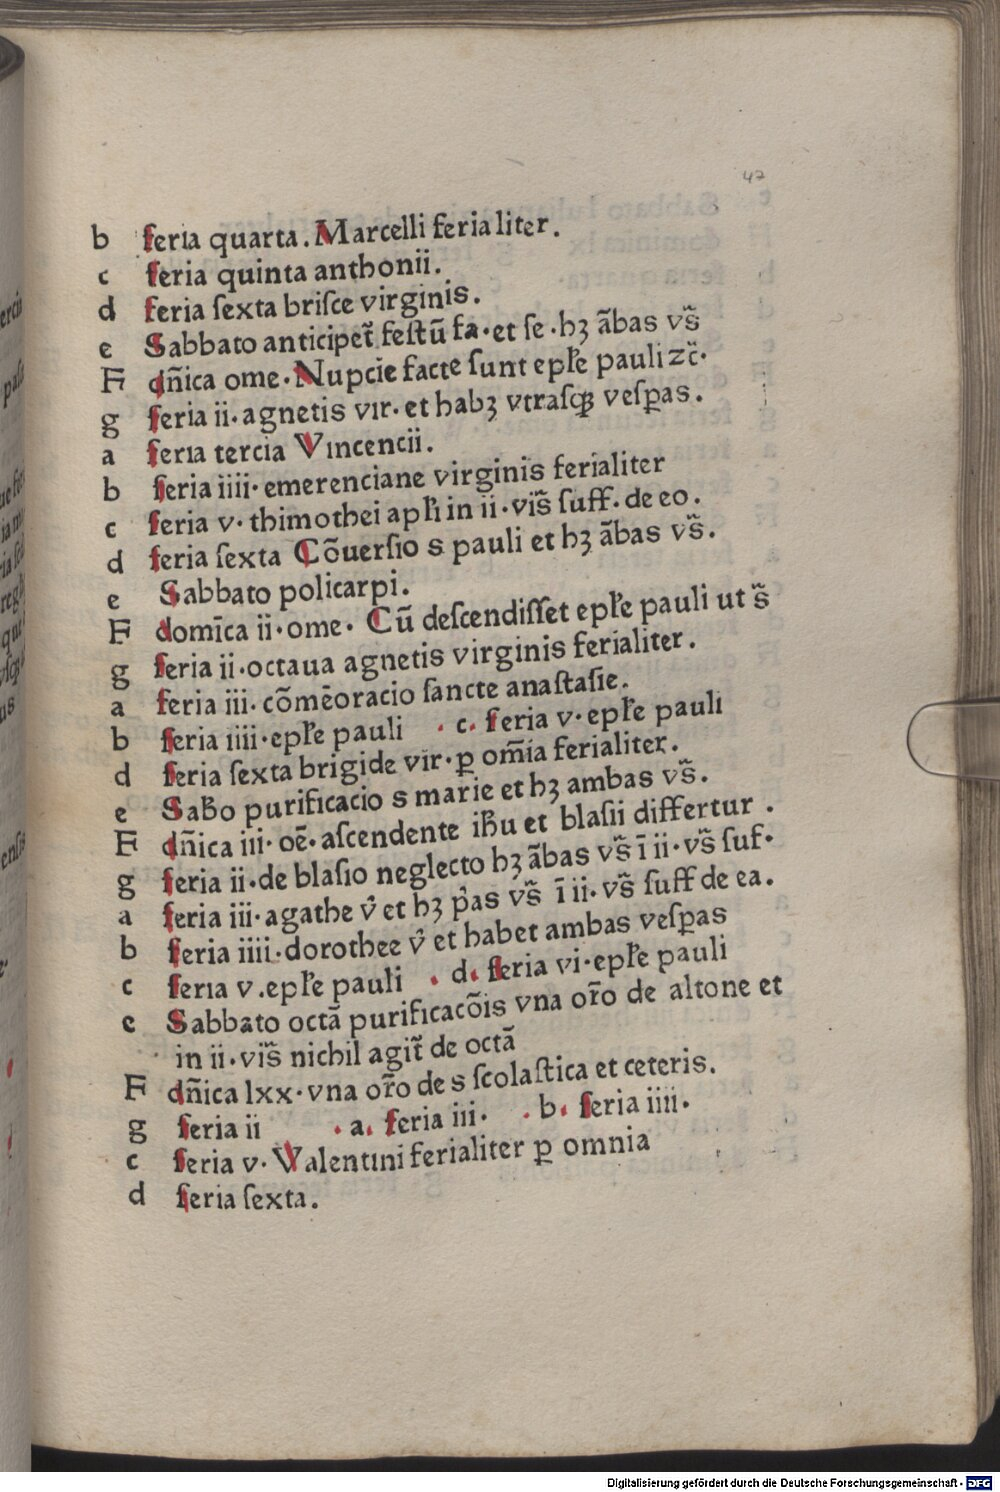 47
b feria quarta. Marcelli ferialiter.
c feria quinta anthonii.
d feria ſexta briſce virginis.
e Sabbato anticipet̃ feſtũ fa·et ſe·hꝫ ãbas vs̃
F dñica ome·Nupcie facte ſunt epľe pauli zc̃·
g feria ii·agnetis vir·et habꝫ vtraſqꝫ veſꝑas.
a feria tercia Vincencii.
b feria iiii·emerenciane virginis ferialiter
c feria v·thimothei apľi in ii·vis̃ ſuff·de eo.
d feria ſexta Cõuerſio s pauli et hꝫ ãbas vs̃.
e Sabbato policarpi.
F domĩca ii·ome· Cũ deſcendiſſet epľe pauli ut s̃
g feria ii·octaua agnetis virginis ferialiter.
a feria iii·cõmẽoracio ſancte anaſtaſie.
b feria iiii·epľe pauli · c. feria v·epľe pauli
d feria ſexta brigide vir·ꝑ om̃ia ferialiter.
e Sabƀo purificacio s marie et hꝫ ambas vs̃.
F dñica iii·oẽ·aſcendente iħu et blaſii differtur .
g feria ii·de blaſio neglecto hꝫ ãbas vs̃ ĩ ii·vs̃ ſuf·
a feria iii·agathe v̉ et hꝫ p̉as vs̃ ĩ ii·vs̃ ſuff de ea.
b feria iiii·dorothee v̉ et habet ambas veſꝑas
c feria v.epľe pauli . d. feria vi·epľe pauli
e Sabbato octã purificacõis vna or̃o de altone et
in ii·vis̃ nichil agit̃ de octã
F dñica lxx·vna or̃o de s ſcolaſtica et ceteris.
g feria ii . a. feria iii. . b. feria iiii.
c feria v·Valentini ferialiter ꝑ omnia
d feria ſexta.
Digitalisierung gefördert durch die Deutsche Forschungsgemeinschaft - DFG